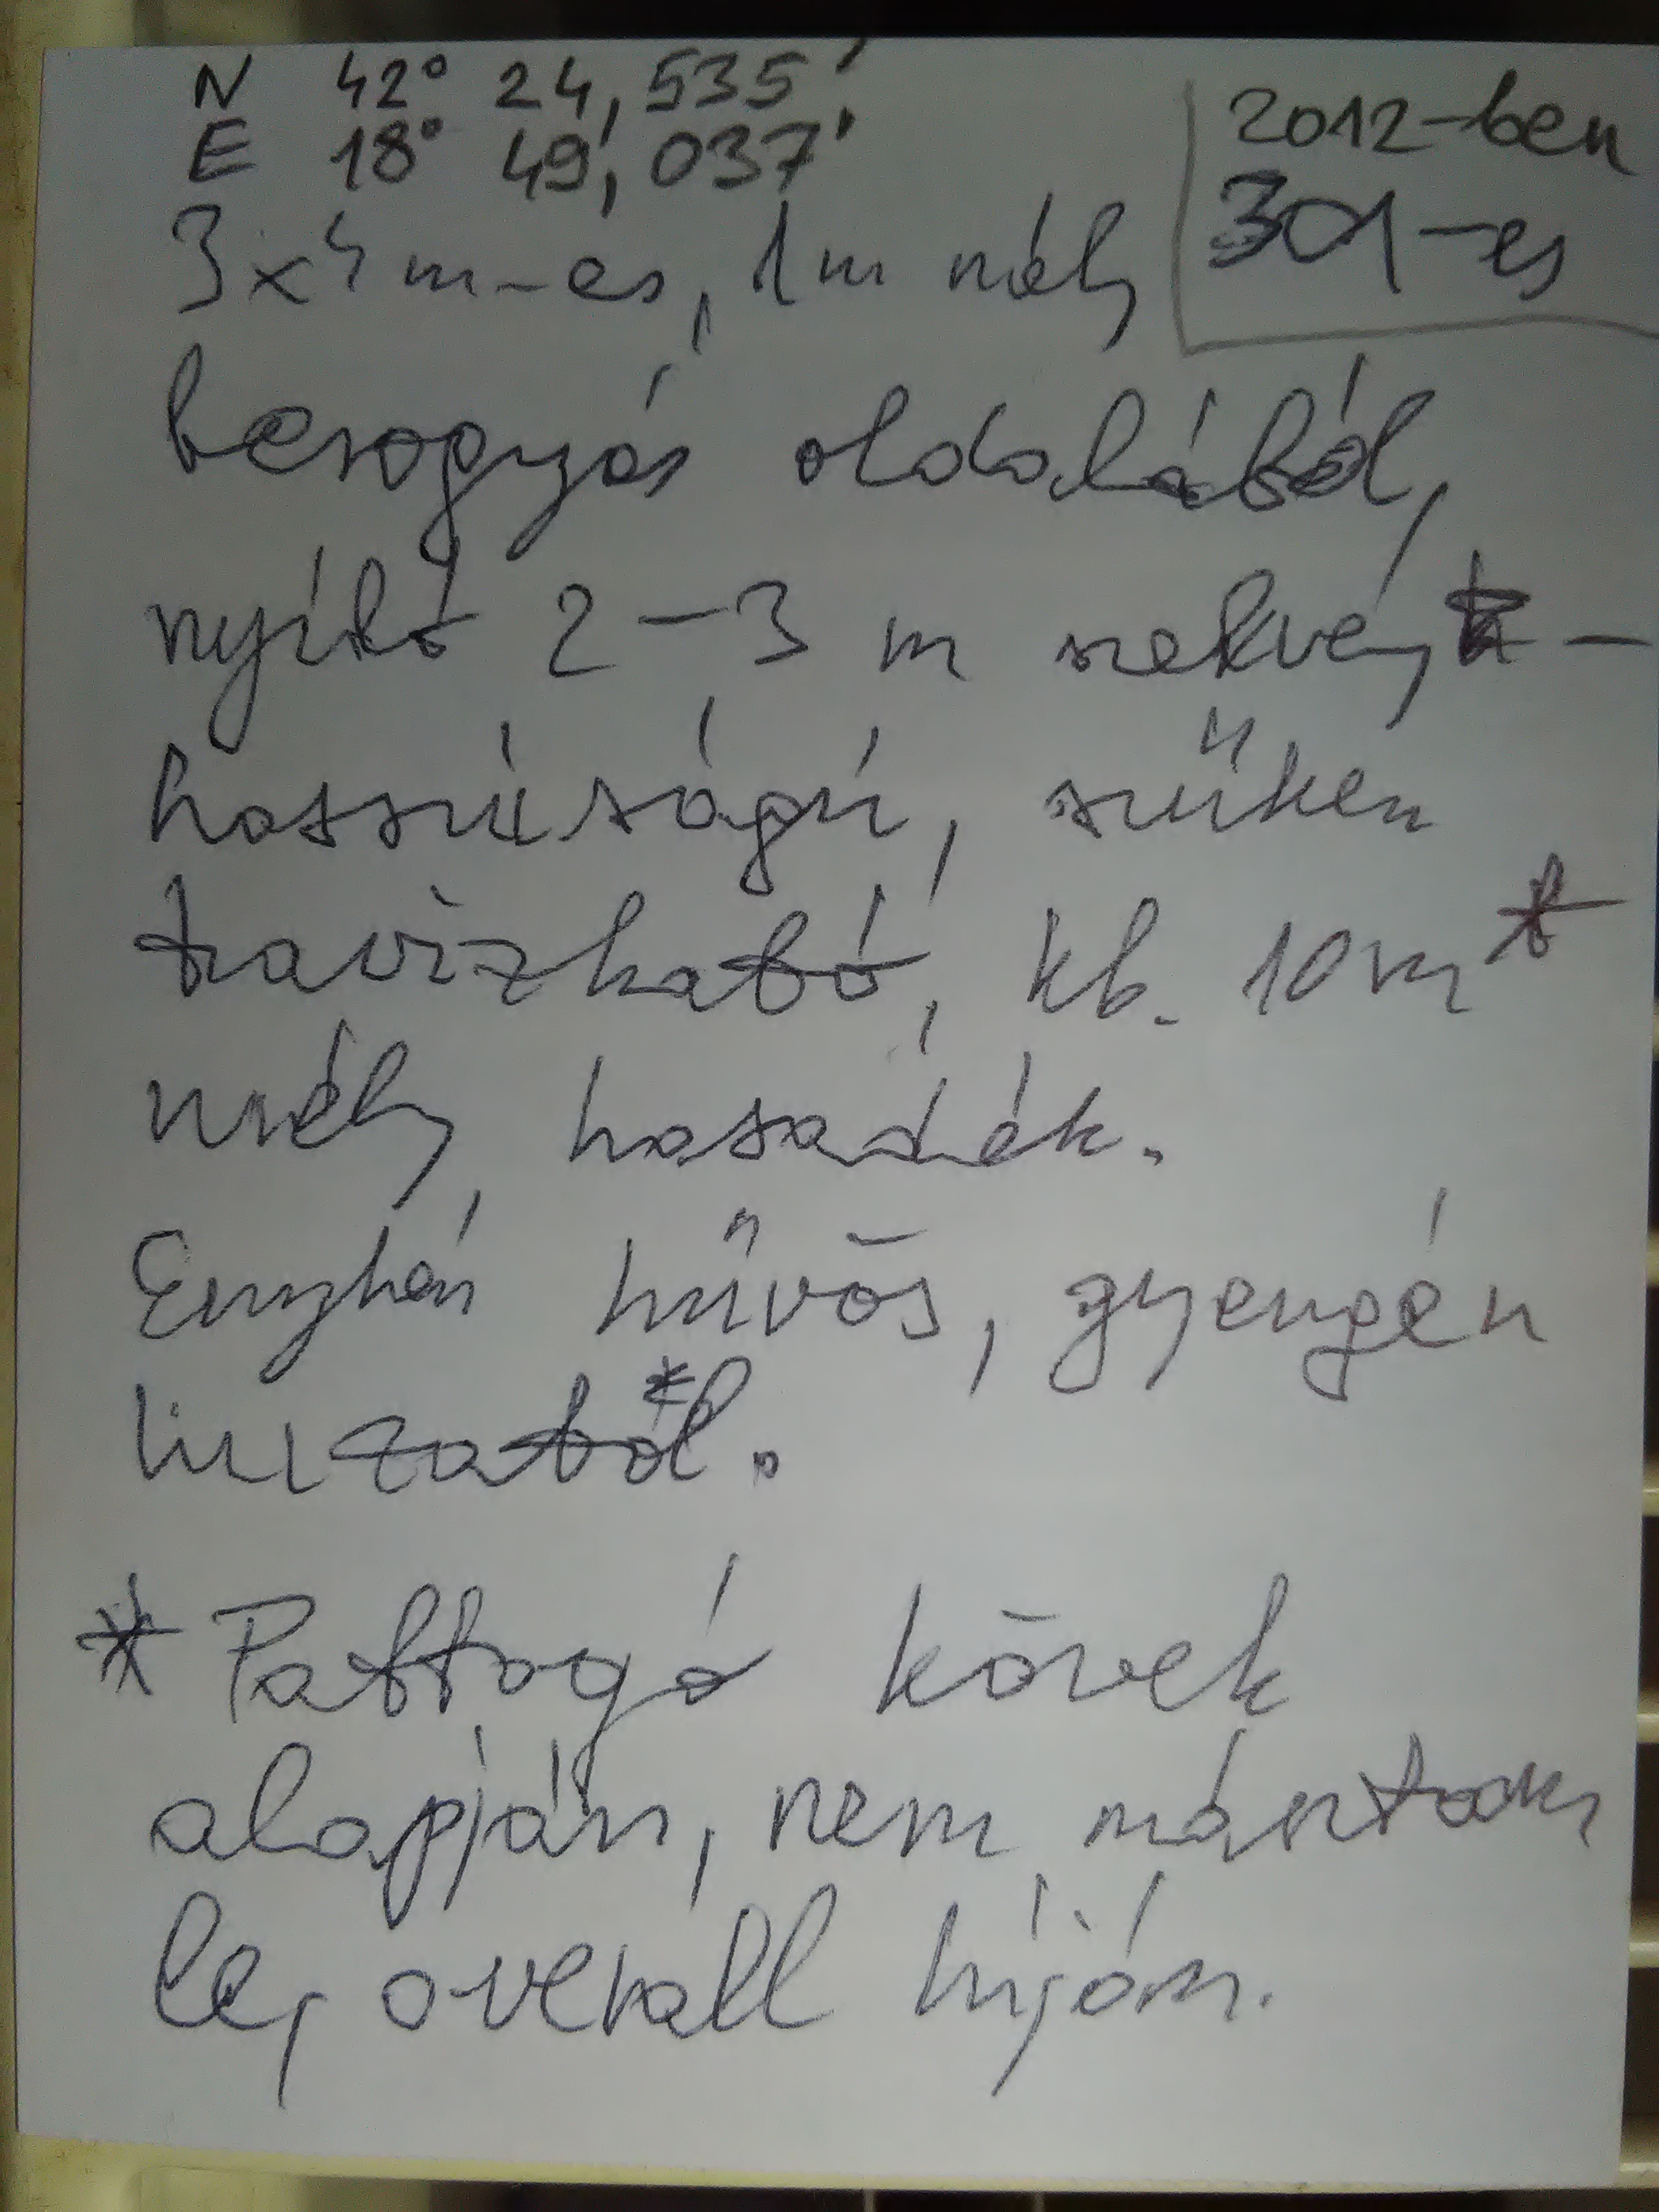 N 42° 24,535'
E 18° 49,037'
2012-ben
301-es
3x4 m-es, 1m mély
berogyás oldalából,
nyíló 2-3 m szelvény-
hosszúságú, szűken
travizható, kb. 10m*
mély, hasadék.
Enyhén hűvös, gyengén
huzatol*.
* Pattogó kövek
alapján, nem másztam
le, overall híján.